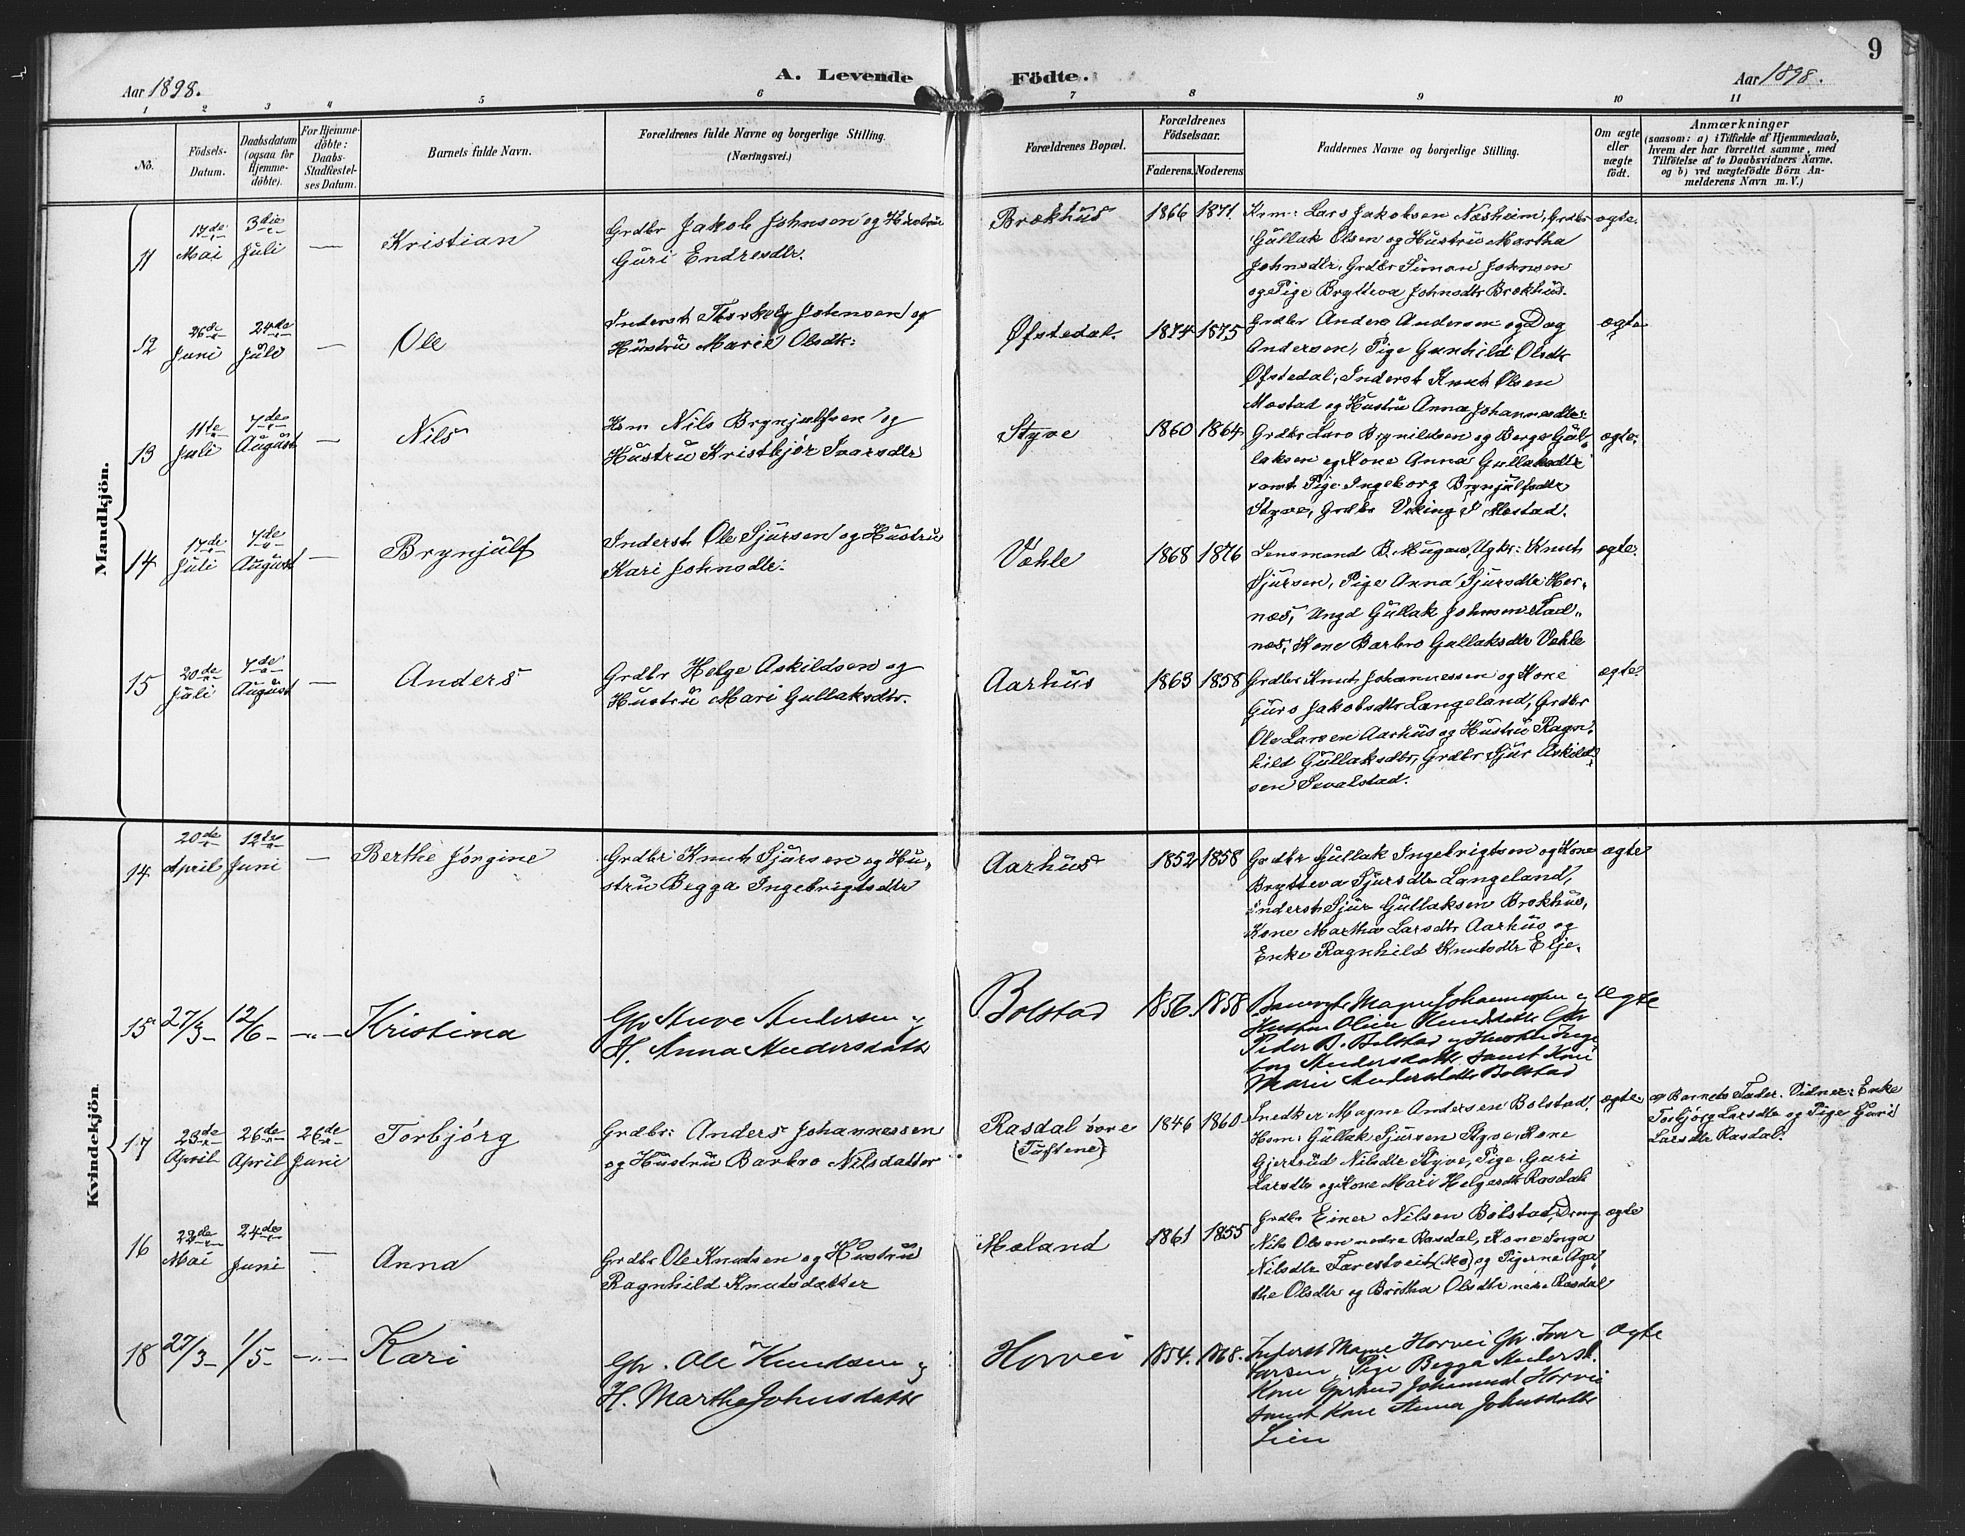 9
A. Levende Födte.
Aar 1898.
Aar 1898.
1 2 3 4 5 6 7 8 9 10 11
No.
Födsels-
Datum.
Daabsdatum
(ogsaa for
Hjemme-
döbte).
For Hjemme-
döbte:
Daabs-
Stadfæstel-
ses Datum.
Barnets fulde Navn.
Forældrenes fulde Navne og borgerlige Stilling.
(Næringsvei.)
Forældrenes Bopæl.
Forældrenes
Födselsaar.
Faderens. Moderens
Faddernes Navne og borgerlige Stilling.
Om ægte
eller
uægte
födt.
Anmærkninger
(saasom: a) i Tilfælde af Hjemmedaab,
hvem der har forrettet samme, med
Tilföielse af to Daabsvidners Navne.
og b) ved uægtefödte Börn An-
melderens Navn m. V.)
Mandkjön.
11
17de
Mai
3die
Juli
—
Kristian
Grdbr Jakob Johnsen og Hustru
Guri Endresdtr.
Brækhus
1866 1871.
Krm: Lars Jakobsen Næsheim, Grdbr
Gullak Olsen og Hustru Martha
Johnsdtr, Grdbr Simon Johnsen
og Pige Brytteva Johnsdtr Brækhus.
ægte.
12
26de
Juni
24de
Juli
—
Ole
Inderst Thorkely Johnsen og
Hustru Marie Olsdtr:
Øfstedal.
1874 1875
Grdbr Anders Andersen og Dag
Andersen, Pige Gunhild Olsdtr
Øfstedal, Inderst Knut Olsen
Mostad og Hustru Anna Johannesdtr:
ægte
13
11te
Juli
7de
August
—
Nils
Hsm Nils Brynjulfsen og
Hustru Kristbjør Ivarsdtr
Styve
1860 1864
Grdbr Lars Brynildsen og Berge Gul-
laksen og Kone Anna Gullaksdtr
samt Pige Ingeborg Brynjulfsdtr
Styve, Grdbr Viking S. Mestad.
ægte.
14
17de
Juli
7de
August
—
Brynjulf
Inderst Ole Sjursen og Hustru
Kari Johnsdtr.
Væhle
1868 1876
Lensmand B. Mugaas, Ugkr: Knut
Sjursen, Pige Anna Sjursdtr Her-
næs, Ungd Gullak Johnsen Fad-
næs, Kone Barbro Gullaksdtr Væhle
ægte.
15
20de
Juli
7de
August
—
Anders
Grdbr Helge Askildsen og
Hustru Mari Gullaksdtr.
Aarhus
1863 1858
Grdbr Knut Johannessen og Kone
Guro Jakobsdtr Langeland, Grdbr
Ole Larsen Aarhus og Hustru Ragn-
hild Gullaksdtr, Grdbr Sjur Askild-
sen Sevalstad.
ægte.
Kvindekjön.
14
20de
April
12te
Juni
—
Berthe Jørgine
Grdbr Knut Sjursen og Hu-
stru Begga Ingebrigtsdtr
Aarhus
1852 1858
Grdbr Gullak Ingebrigtsen og Kone
Brytteva Sjursdtr Langeland,
Inderst Sjur Gullaksen Brækhus,
Kone Martha Larsdtr Aarhus og
Enke Ragnhild Knutsdtr Elje.
ægte
15
27/3
12/6
—
Kristina
Gbr Anve Andersen og
H. Anna Andersdatter
Bolstad
1856. 1858
Magne Johannessen og
Hustru Knudsdtr Gbr
Peder B. Bolstad og Hustru Inge
borg Andersdatter samt Kone
Marie Andersdatter Bolstad
ægte
17
23de
April
26de
April
26de
Juni
Torbjörg
Grdbr: Anders Johannessen
og Hustru Barbro Nilsdatter
Rasdal övre
(Tuftene)
1846 1860
Snedker Magne Andersen Bolstad,
Hsm: Gullak Sjursen Styve, Kone
Gjertrud Nilsdtr Styve, Pige Guri
Larsdtr og Kone Mari Helgesdtr Rasdal
ægte.
af Barnets Fader. Vidner: Enke
Torbjörg Larsdtr og Pige Guri
Larsdtr Rasdal.
16
23de
Mai
24de
Juni
—
Anna
Grdbr Ole Knutsen og Hustru
Ragnhild Knutsdatter
Mæland
1861 1855
Grdbr Einer Nilsen Bolstad, Dreng
Nils Olsen nedre Rasdal, Kone Inga
Nilsdtr Farestveit (Mo) og Pigerne Aga-
the Olsdtr og Britha Olsdtr nedre Rasdal
ægte
18
27/3
1/5
—
Kari
Gbr. Ole Knudsen og
H. Martha Johnsdatter
Horvei
1854. 1868.
Inderst Magne Horvei Gbr. Ivar
Larsen, Pige Begga Andersd.
Kone Gjertrud Horvei
samt Kone Anna Johnsdatter
Lien
ægte